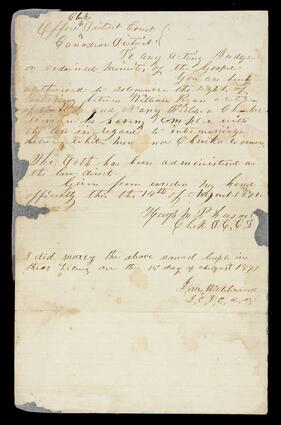 Clerk
Office District Court
Canadian District
To any acting Judge
or ordained Minister of the Gospel
You are hereby
authorized to solemnize the rights of
Matrimony between William a citizen
of the and Nancy a Cherokee
woman he having complied with
the law in regard to intermarriage
between white men and Cherokee women
The Oath has been administered as
the law direct.
Given from under my hand
officially this the 14th of August 1871.
Hugh M.
Clerk D.C.C.D.
I did marry the above named couple in
this the 15 day of August 1871
Hildebrand